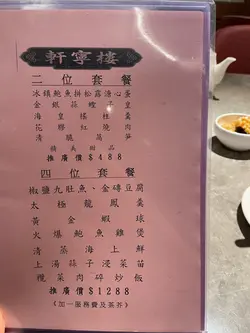 軒寧樓
二位套餐
冰鎮鮑魚拼松露溏心蛋
金銀蒜蟶子皇
海皇瑤柱羹
花膠紅燒肉
清龍蒿筍
精美甜品
推廣價$488
四位套餐
椒鹽九肚魚、金磚豆腐
太極龍鳳羹
黃金蝦球
火爆鮑魚雞煲
清蒸海上鮮
上湯蒜子浸菜苗
欖菜肉碎炒飯
推廣價$1288
《加一服務費及茶芥》